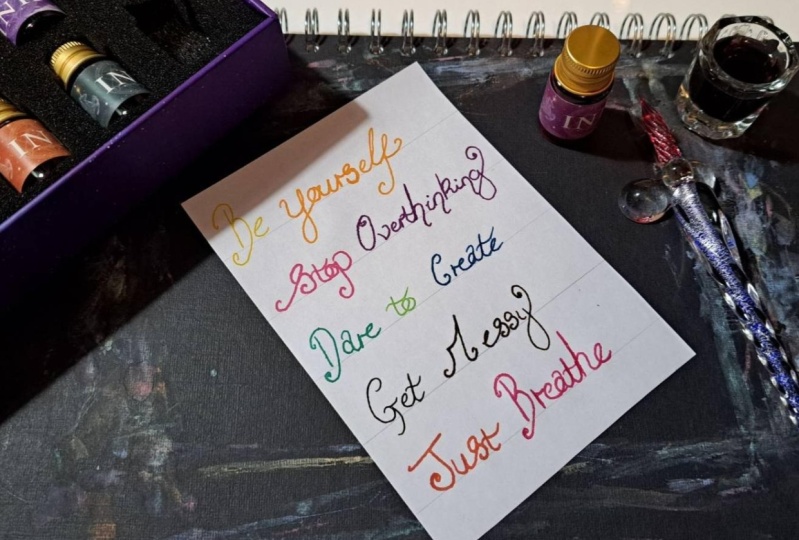 IN
IN
IN
IN
Be yourself
Stop Overthinking
Dare to Create
Get Messy
Just Breathe